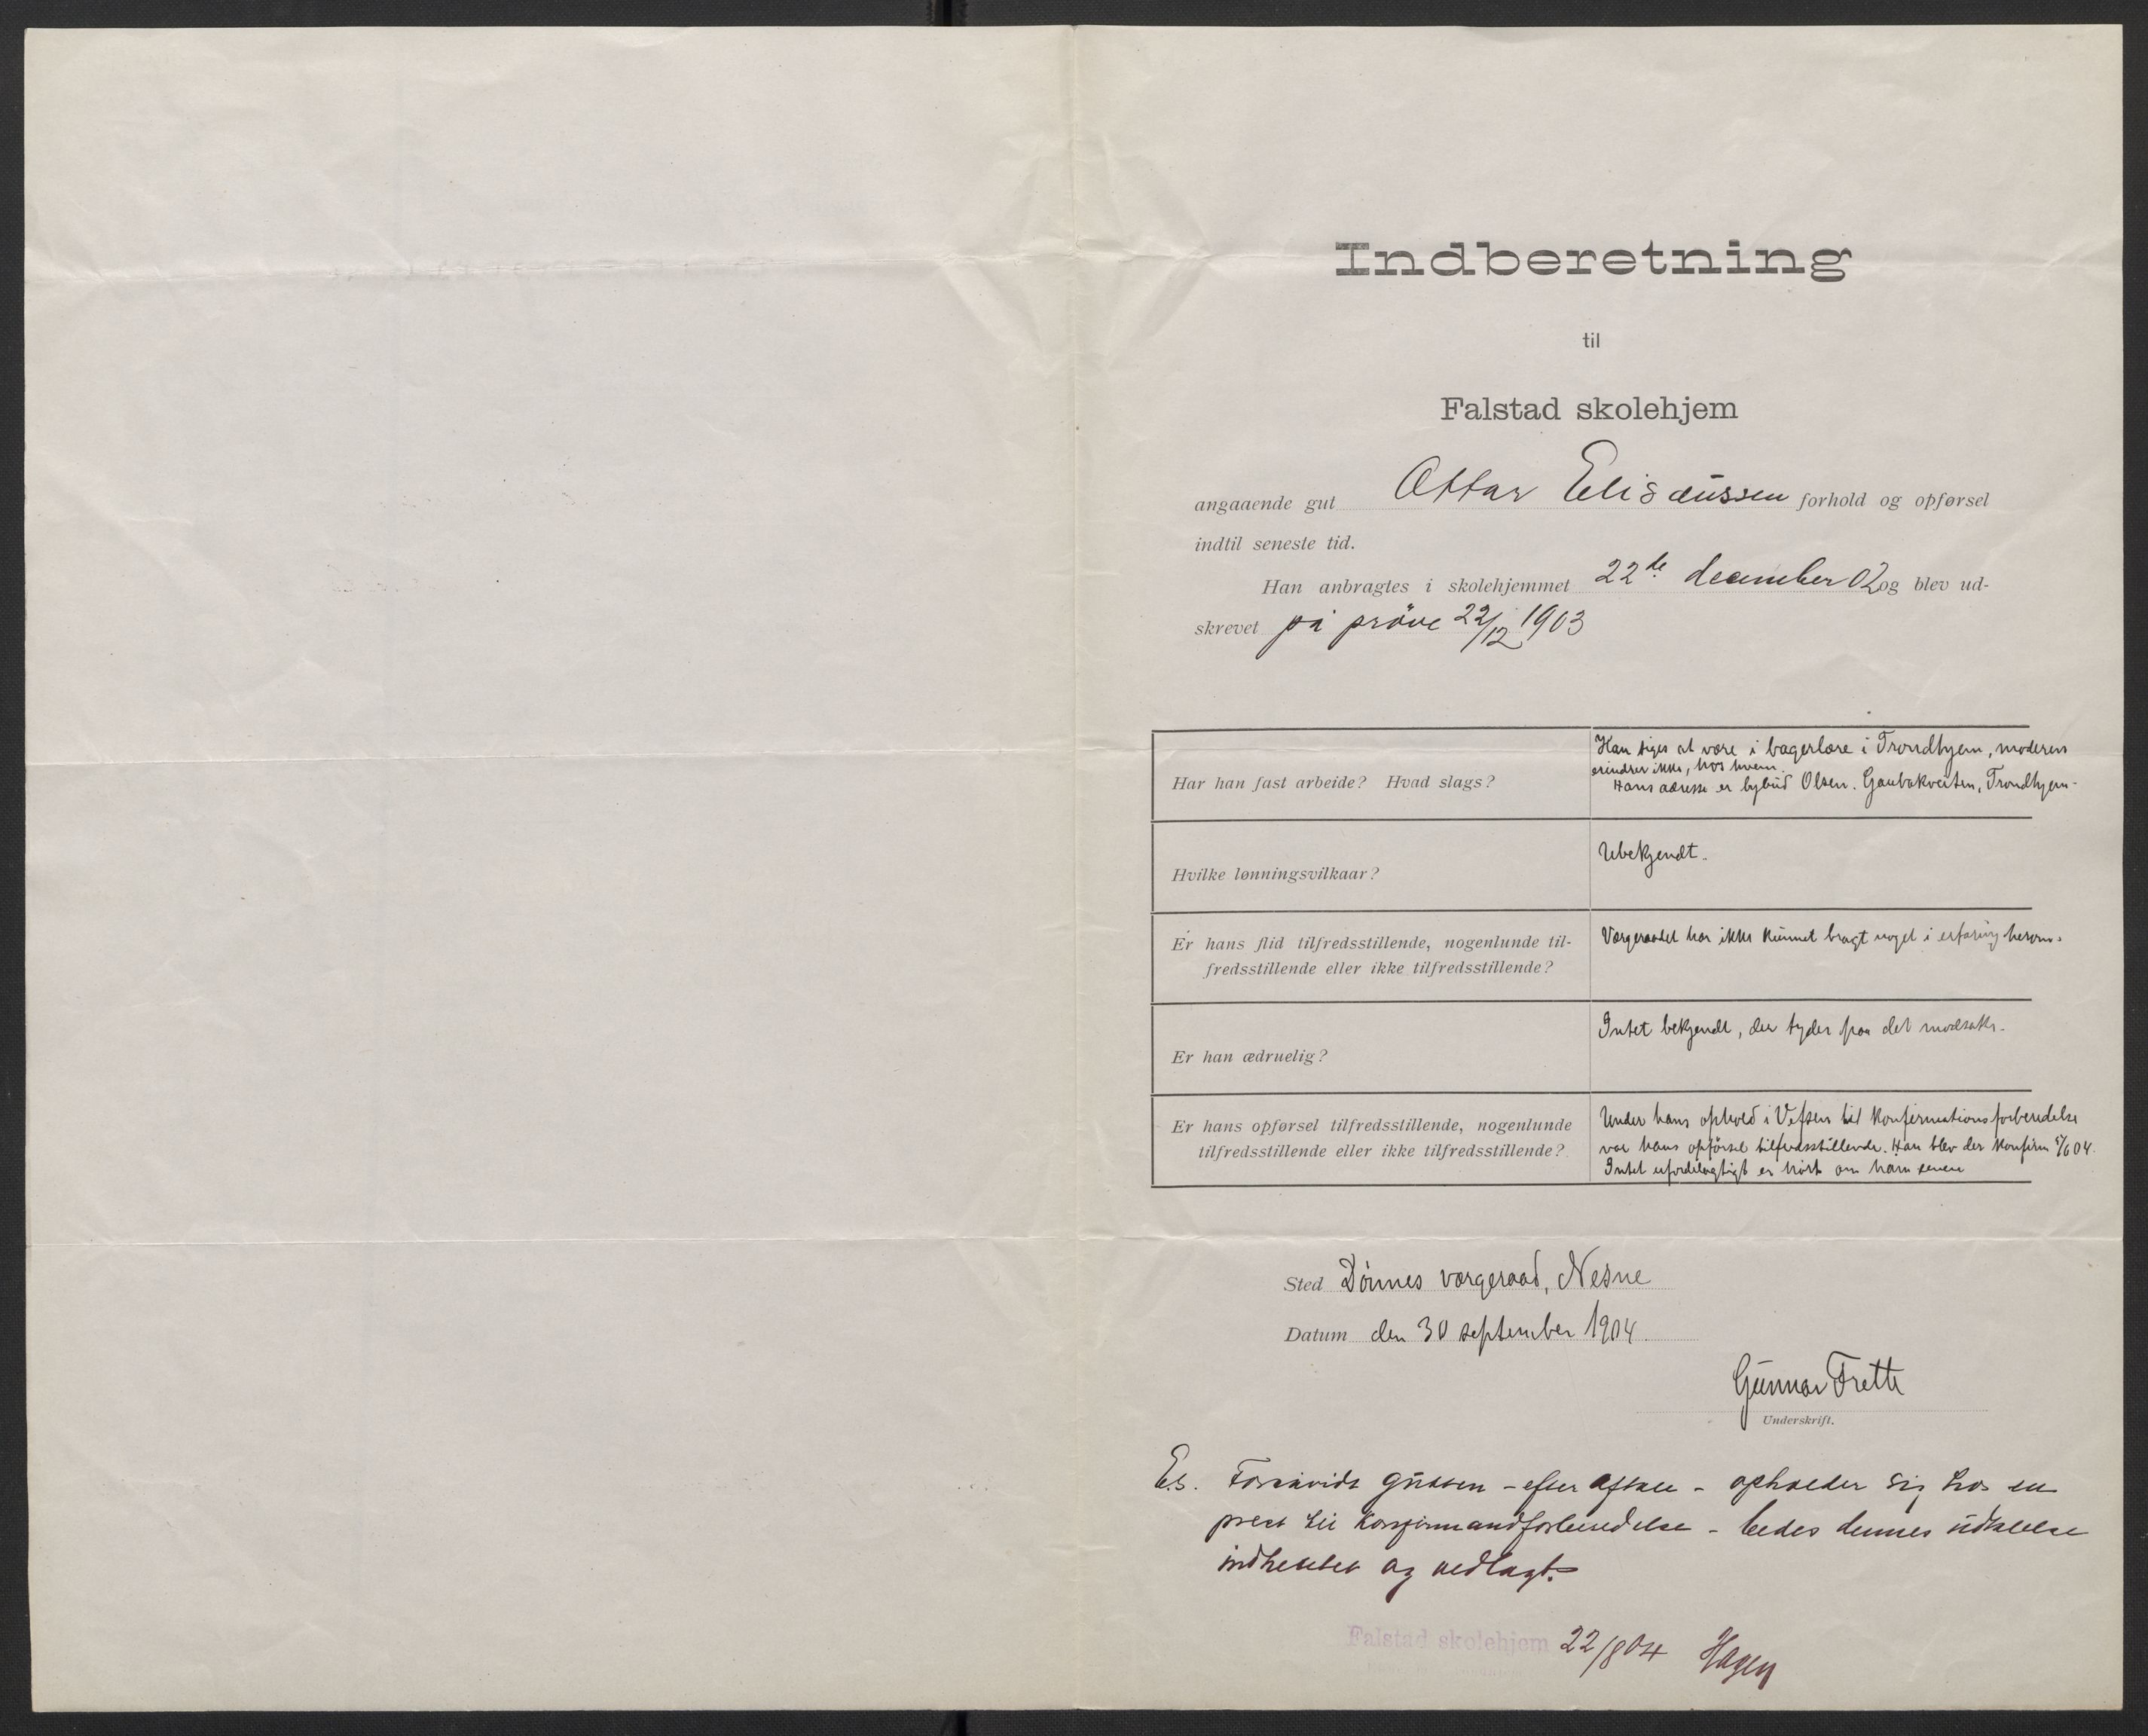 Indberetning
til
Falstad skolehjem
angaaende gut Ottar Elisæussen forhold og opførsel
indtil seneste tid.
Han anbragtes i skolehjemmet 22de december 02 og blev ud-
skrevet på prøve 22/12 1903
Har han fast arbeide? Hvad slags?
Han siges at være i bagerlære i Trondhjem, moderen
erindrer ikke, hos hvem.
Hans adresse er bybud Olsen. Trondhjem.
Hvilke lønningsvilkaar?
Ubekjendt.
Er hans flid tilfredsstillende, nogenlunde til-
fredsstillende eller ikke tilfredsstillende?
Værgeraadet har ikke kunnet bragt noget i erfaring herom.
Er han ædruelig?
Intet bekjendt, der tyder paa det modsatte.
Er hans opførsel tilfredsstillende, nogenlunde
tilfredsstillende eller ikke tilfredsstillende?
Under hans ophold i Vefsen til konfirmationsforberedelse
var hans opførsel tilfredsstillende. Han blev der konfirm 5/6 04.
Intet ufordelagtigt er hørt om ham senere
Sted Dønnes værgeraad, Nesne
Datum den 30 september 1904.
Gunnar Tretti
Underskrift.
E.s. Forsåvidt gutten - efter aftale - opholder sig hos en
prest til konfirmandforberedelse - bedes dennes udtalelse
indhentet og vedlagt.
Falstad skolehjem 22/8 04 Hagen